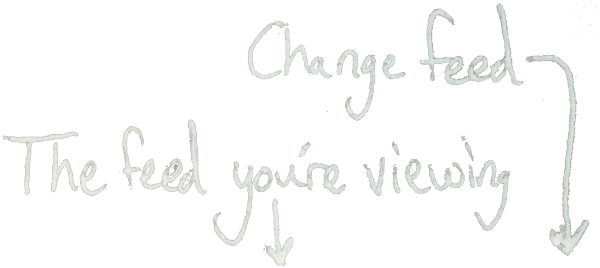 Change feed
The feed you're viewing